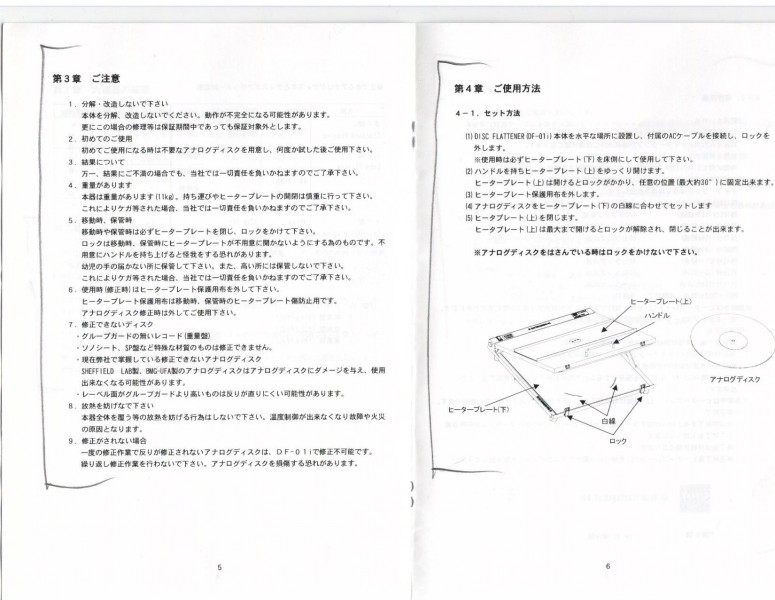 第3章　ご注意
1．分解・改造しないで下さい
本体を分解、改造しないでください。動作が不完全になる可能性があります。
更にこの場合の修理等は保証期間中であっても保証対象外とします。
2．初めてのご使用
初めてご使用になる時は不要なアナログディスクを用意し、何度か試した後ご使用下さい。
3．結果について
万一、結果にご不満の場合でも、当社では一切責任を負いかねますのでご了承下さい。
4．重量があります
本器は重量があります(11kg)。持ち運びやヒータープレートの開閉は慎重に行って下さい。
これによりケガ等された場合、当社では一切責任を負いかねますのでご了承下さい。
5．移動時、保管時
移動時や保管時は必ずヒータープレートを閉じ、ロックをかけて下さい。
ロックは移動時、保管時にヒータープレートが不用意に開かないようにする為のものです。不
用意にハンドルを持ち上げると怪我をする恐れがあります。
幼児の手の届かない所に保管して下さい。また、高い所には保管しないで下さい。
これによりケガ等された場合、当社では一切責任を負いかねますのでご了承下さい。
6．使用時(修正時)はヒータープレート保護用布を外して下さい。
ヒータープレート保護用布は移動時、保管時のヒータープレート傷防止用です。
アナログディスク修正時は外してご使用下さい。
7．修正できないディスク
・グルーブガードの無いレコード(重量盤)
・ソノシート、SP盤など特殊な材質のものは修正できません。
・現在弊社で掌握している修正できないアナログディスク
SHEFFIELD LAB製、BMG-UFA製のアナログディスクはアナログディスクにダメージを与え、使用
出来なくなる可能性があります。
・レーベル面がグルーブガードより高いものは反りが直りにくい可能性があります。
8．放熱を妨げなで下さい
本器全体を覆う等の放熱を妨げる行為はしないで下さい。温度制御が出来なくなり故障や火災
の原因となります。
9．修正がされない場合
一度の修正作業で反りが修正されないアナログディスクは、DF-01iで修正不可能です。
繰り返し修正作業を行わないで下さい。アナログディスクを損傷する恐れがあります。
5
第4章　ご使用方法
4－1．セット方法
(1)DISC FLATTENER(DF-01i)本体を水平な場所に設置し、付属のACケーブルを接続し、ロックを
外します。
※使用時は必ずヒータープレート(下)を床側にして使用して下さい。
(2)ハンドルを持ちヒータープレート(上)をゆっくり開けます。
ヒータープレート(上)は開けるとロックがかかり、任意の位置(最大約30°)に固定出来ます。
(3)ヒータープレート保護用布を外します。
(4)アナログディスクをヒータープレート(下)の白線に合わせてセットします
(5)ヒータープレート(上)を閉じます。
ヒータープレート(上)は最大まで開けるとロックが解除され、閉じることが出来ます。
※アナログディスクをはさんでいる時はロックをかけないで下さい。
ヒータープレート(上)
ハンドル
アナログディスク
ヒータープレート(下)
白線
ロック
6